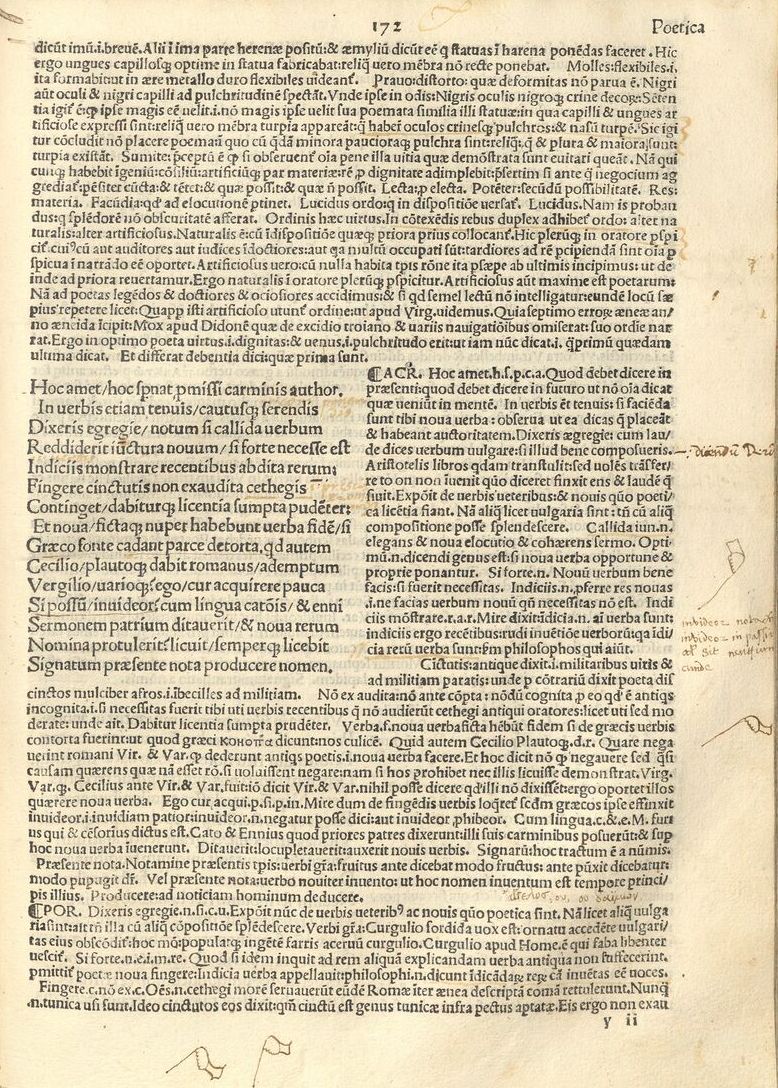 172
Poetica
dicũt imũ.i.breuẽ. Alii ĩ ima parte herenæ positũ: & æmyliũ dicũt eẽ q statuas ĩ harena ponẽdas faceret. Hic
ergo ungues capillosq; optime in statua fabricabat: reliq uero mẽbra nõ recte ponebat. Molles: flexibiles.i.
ita formabit: ut in ære metallo duro flexibiles uideant̃. Prauo: distorto: quæ deformitas nõ parua ẽ. Nigri
aũt oculi & nigri capilli ad pulchritudinẽ spectãt. Vnde ipse in odis: Nigris oculis nigroq; crine decoꝝ: Sẽten
tia igit̃ ẽ: ꝙ ipse magis eẽ uelit.i.nõ magis ipse uelit sua poemata similia illi statuæ: in qua capilli & ungues ar
tificiose expressi sint: reliq uero mẽbra turpia appareãt: q̃ haberi oculos crinesq; pulchros: & nasũ turpẽ. Sic igi
tur cõcludit nõ placere poema: ĩ quo cũ q̃dã minora paucioraq; pulchra sint: reliq: q̃ & plura & maiora sunt:
turpia existãt. Sumite: p̃ceptũ ẽ ꝙ si obseruent̃ oĩa pene illa uitia quæ demõstrata sunt euitari queãt. Nã qui
cunq; habebit ĩgeniũ: cõsiliũ: artificiũq; par materiæ: rẽ ꝓ dignitate adimplebit: p̃sertim si ante q̃ negocium ag
grediat̃: pẽsiter cũcta: & tẽtet: & quæ possit: & quæ ñ possit. Lecta: ꝓ electa. Potẽter: secũdũ possibilitatẽ. Res:
materia. Facũdia: qd̃ ad elocutionẽ ptinet. Lucidus ordo: q ĩ dispositiõe uersat̃. Lucidus. Nam is proban
dus: q splẽdorẽ nõ obscuritatẽ afferat. Ordinis hæc uirtus. In cõtexẽdis rebus duplex adhibet̃ ordo: alter na
turalis: alter artificiosus. Naturalis ẽ: cũ ĩ dispositiõe quæq; priora prius collocant̃. Hic plerũq; in oratore pspi
cit̃. cui⁹ cũ aut auditores aut iudices ĩdoctiores: aut q̃a multũ occupati sũt: tardiores ad rẽ pcipiendã sint oĩa p
spicua ĩ narrãdo eẽ oportet. Artificiosus uero: cũ nulla habita tp̃is rõne ita p̃sæpe ab ultimis incipimus: ut de
inde ad priora reuertamur. Ergo naturalis ĩ oratore plerũq; pspicitur. Artificiosus aũt maxime est poetarum:
Nã ad poetas legẽdos & doctiores & ociosiores accidimus: & si qd semel lectũ nõ intelligatur: eundẽ locũ sæ
pius repetere licet: Quapp isti artificioso utunt̃ ordine: ut apud Virg. uidemus. Quia septimo errore æneæ an/
no æneida ĩcipit: Mox apud Didonẽ quæ de excidio troiano & uariis nauigatiõibus omiserat: suo ordie nar
rat. Ergo in optimo poeta uirtus.i.dignitas: & uenus.i.pulchritudo erit: ut iam nũc dicat.i.q̃primũ quædam
ultima dicat. Et differat debentia dici: quæ prima sunt.
Hoc amet/hoc spnat ꝓmissi carminis author.
In uerbis etiam tenuis/cautusq; serendis
Dixeris egregie/notum si callida uerbum
Reddiderit iũctura nouum/si forte necesse est
Indiciis monstrare recentibus abdita rerum:
Fingere cinctutis non exaudita cethegis
Continget/dabiturq; licentia sumpta pudẽter:
Et noua/fictaq; nuper habebunt uerba fidẽ/si
Græco fonte cadant parce detorta. qd autem
Cecilio/plautoq; dabit romanus/ademptum
Vergilio/uarioq;? ego/cur acquirere pauca
Si possũ/inuideor? cum lingua catõis/& enni
Sermonem patrium ditauerit/& noua rerum
Nomina protulerit? licuit/semperq; licebit
Signatum præsente nota producere nomen.
¶ACR. Hoc amet.h.s.p.c.a. Quod debet dicere in
præsenti: quod debet dicere in futuro ut nõ oĩa dicat
quæ ueniũt in mentẽ. In uerbis ẽt tenuis: si faciẽda
sunt tibi noua uerba: obserua ut ea dicas q̃ placeãt
& habeant auctoritatem. Dixeris ægregie: cum lau/
de dices uerbum uulgare: si illud bene composueris.
Aristotelis libros qdam transtulit: sed uolẽs trãsfer/
re to on non ĩuenit quo diceret finxit ens & laudẽ q̃
siuit. Expõit de uerbis ueteribus: & nouis quo poeti/
ca licẽtia fiant. Nã aliq licet uulgaria sint: tñ cũ aliq
compositione posse splendescere. Callida iun.n.
elegans & noua elocutio & cohærens sermo. Opti-
mũ.n.dicendi genus est: si noua uerba opportune &
proprie ponantur. Si forte.n. Nouũ uerbum bene
facis: si fuerit necessitas. Indiciis.n.pferre res nouas
.i.ne facias uerbum nouũ qñ necessitas nõ est. Indi
ciis mõstrare.r.a.r. Mire dixit: ĩdicia.n. aĩ uerba sunt:
indiciis ergo recẽtibus: rudi inuẽtiõe uerborũ: q̃a ĩdi/
cia rerũ uerba sunt: s̃m philosophos qui aiũt.
Cĩctutis: antique dixit.i.militaribus uiris &
ad militiam paratis: unde p cõtrariũ dixit poeta dis
cinctos mulciber afros.i.ĩbecilles ad militiam. Nõ ex audita: nõ ante cõpta: nõdũ cognita ꝓ eo qd̃ ẽ antiqs
incognita.i.si necessitas fuerit tibi uti uerbis recentibus q̃ nõ audierũt cethegi antiqui oratores: licet uti sed mo
derate: unde ait. Dabitur licentia sumpta prudẽter. Verba.f.noua uerba ficta hẽbũt fidem si de græcis uerbis
contorta fuerint: ut quod græci κονοπῖα dicunt: nos culicẽ. Quid autem Cecilio Plautoq;.d.r. Quare nega
uerint romani Vir. & Var. q̃ dederunt antiqs poetis.i.noua uerba facere. Et hoc dicit nõ q̃ negauere sed q̃si
causam quærens quæ nã esset rõ. si uoluissent negare: nam si hos prohibet nec illis licuisse demonstrat. Virg.
Var.q̃. Cecilius ante Vir. & Var. fuit: iõ dicit Vir. & Var. nihil posse dicere qd̃ illi nõ dixisset: ergo oportet illos
quærere noua uerba. Ego cur acqui.p.si.p.in. Mire dum de fingẽdis uerbis loqret̃ scdm græcos ipse effinxit
inuideor.i.inuidiam patior: inuideor.n.negatur posse dici: aut inuideor ꝓhibeor. Cum lingua.c.&.e. M. furi
us qui & cẽsorius dictus est. Cato & Ennius quod priores patres dixerunt: illi suis carminibus posuerũt: & sup
hoc noua uerba ĩuenerunt. Ditauerit: locupletauerit: auxerit nouis uerbis. Signarũ: hoc tractum ẽ a nũmis.
Præsente nota. Notamine præsentis tp̃is: uerbi gr̃a: fruitus ante dicebat̃ modo fructus: ante pũxit dicebatur:
modo pupugit dr̃. Vel præsente nota: uerbo nouiter inuento: ut hoc nomen inuentum est tempore princi/
pis illius. Producere: ad noticiam hominum deducere.
¶POR. Dixeris egregie.n.si.c.u. Expõit nũc de uerbis ueterib⁹ ac nouis quo poetica sint. Nã licet aliq̃ uulga
ria sint: attñ illa cũ aliq̃ cõpositiõe splẽdescere. Verbi gr̃a: Curgulio fordida uox est: ornatu accedẽte uulgari/
tas eius obscõdit̃: hoc mõ: populatq; ingẽtẽ farris aceruũ curgulio. Curgulio apud Home.ẽ qui faba libenter
uescit̃. Si forte.n.e.i.m.re. Quod si idem inquit ad rem aliquã explicandam uerba antiqua non suffecerint,
pmittit̃ poetæ noua fingere: Indicia uerba appellauit: philosophi.n.dicunt ĩdicãdaꝝ reꝝ cã inuẽtas eẽ uoces.
Fingere.c.nõ ex.c. Oẽs.n.cethegi morẽ seruauerũt eũdẽ Romæ iter ænea descriptã comã rettulerunt. Nunq̃
.n.tunica usi sunt. Ideo cinctutos eos dixit: qm̃ cinctũ est genus tunicæ infra pectus aptatæ. Eis ergo non exau
y ii